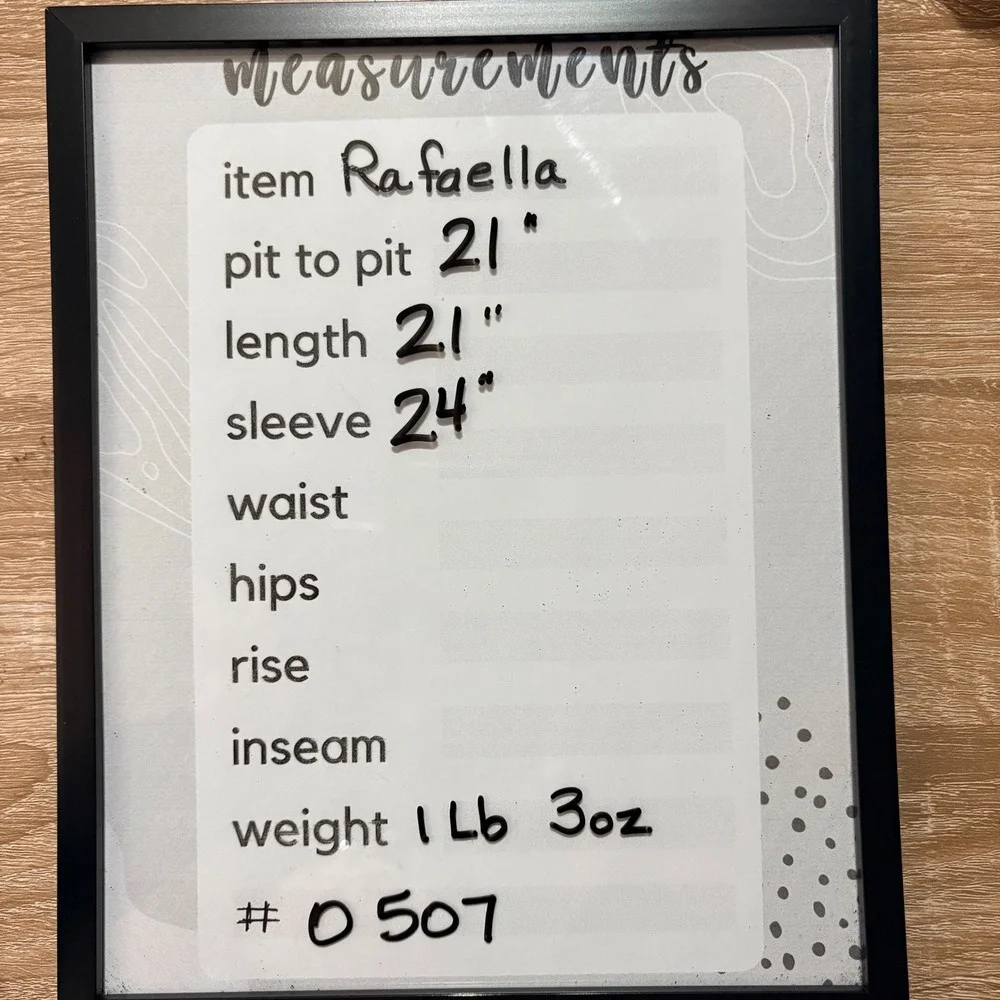 measurements
item Rafaella
pit to pit 21"
length 21"
sleeve 24"
waist
hips
rise
inseam
weight 1 Lb 3oz
# 0507